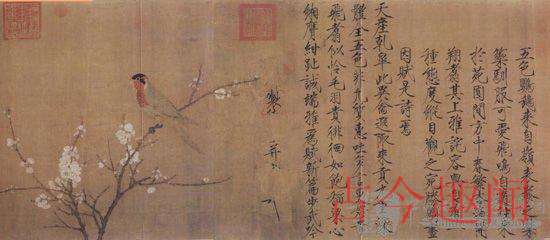 五色鸚鵡來自嶺表養之禁
籞馴服可愛飛鳴自適往來
於苑囿間方中春繁杏遍開
翔翥其上雅詫容與自有一
種態度縱目觀之宛勝圖畫
因賦是詩焉
天產乾皋此異禽遐陬來貢九重深
體全五色非凡質惠吐多言更好音
飛翥似憐毛羽貴徘徊如飽稻粱心
緗膺紺趾誠端雅為賦新篇步武吟
古今趣闻